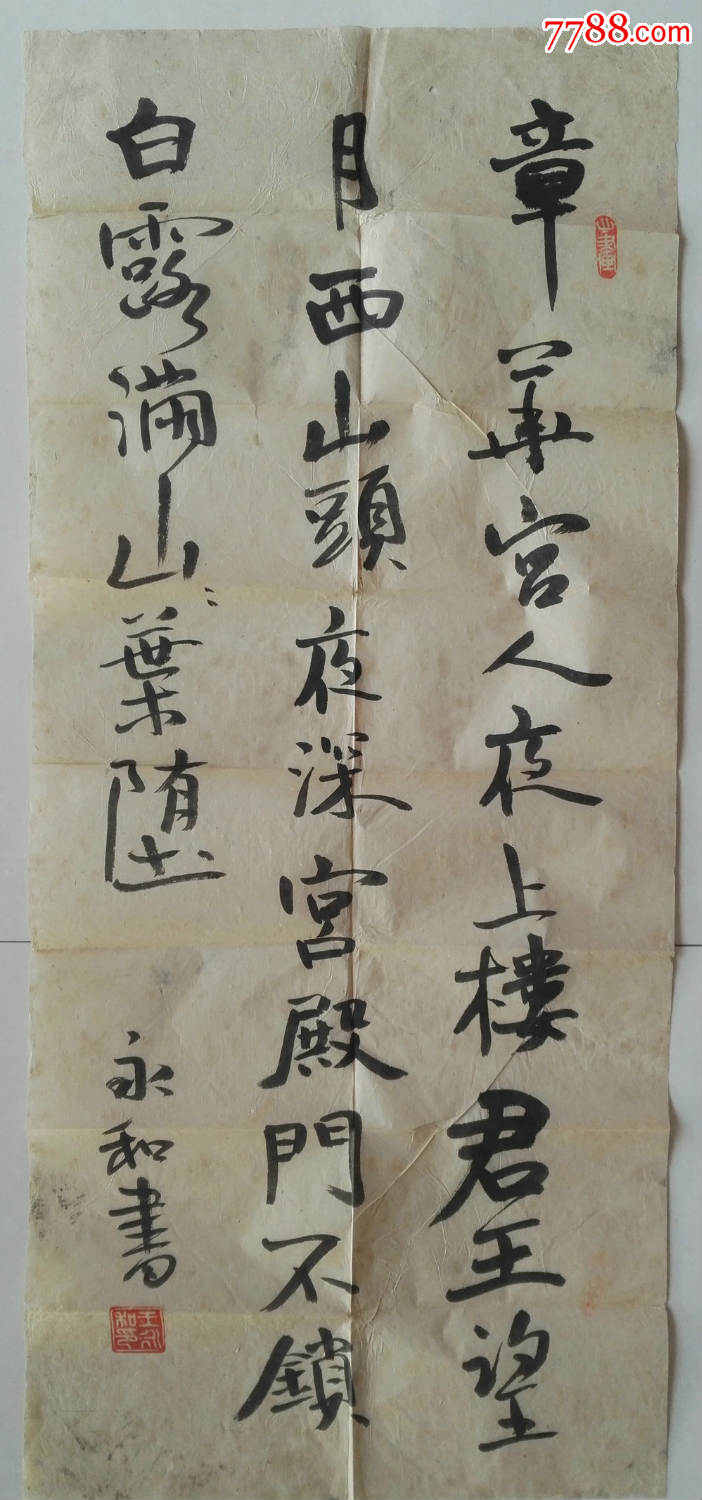 7788.com
章華宫人夜上樓君王望
月西山頭夜深宮殿門不鎖
白露滿山山葉墮
永和書
王永和印